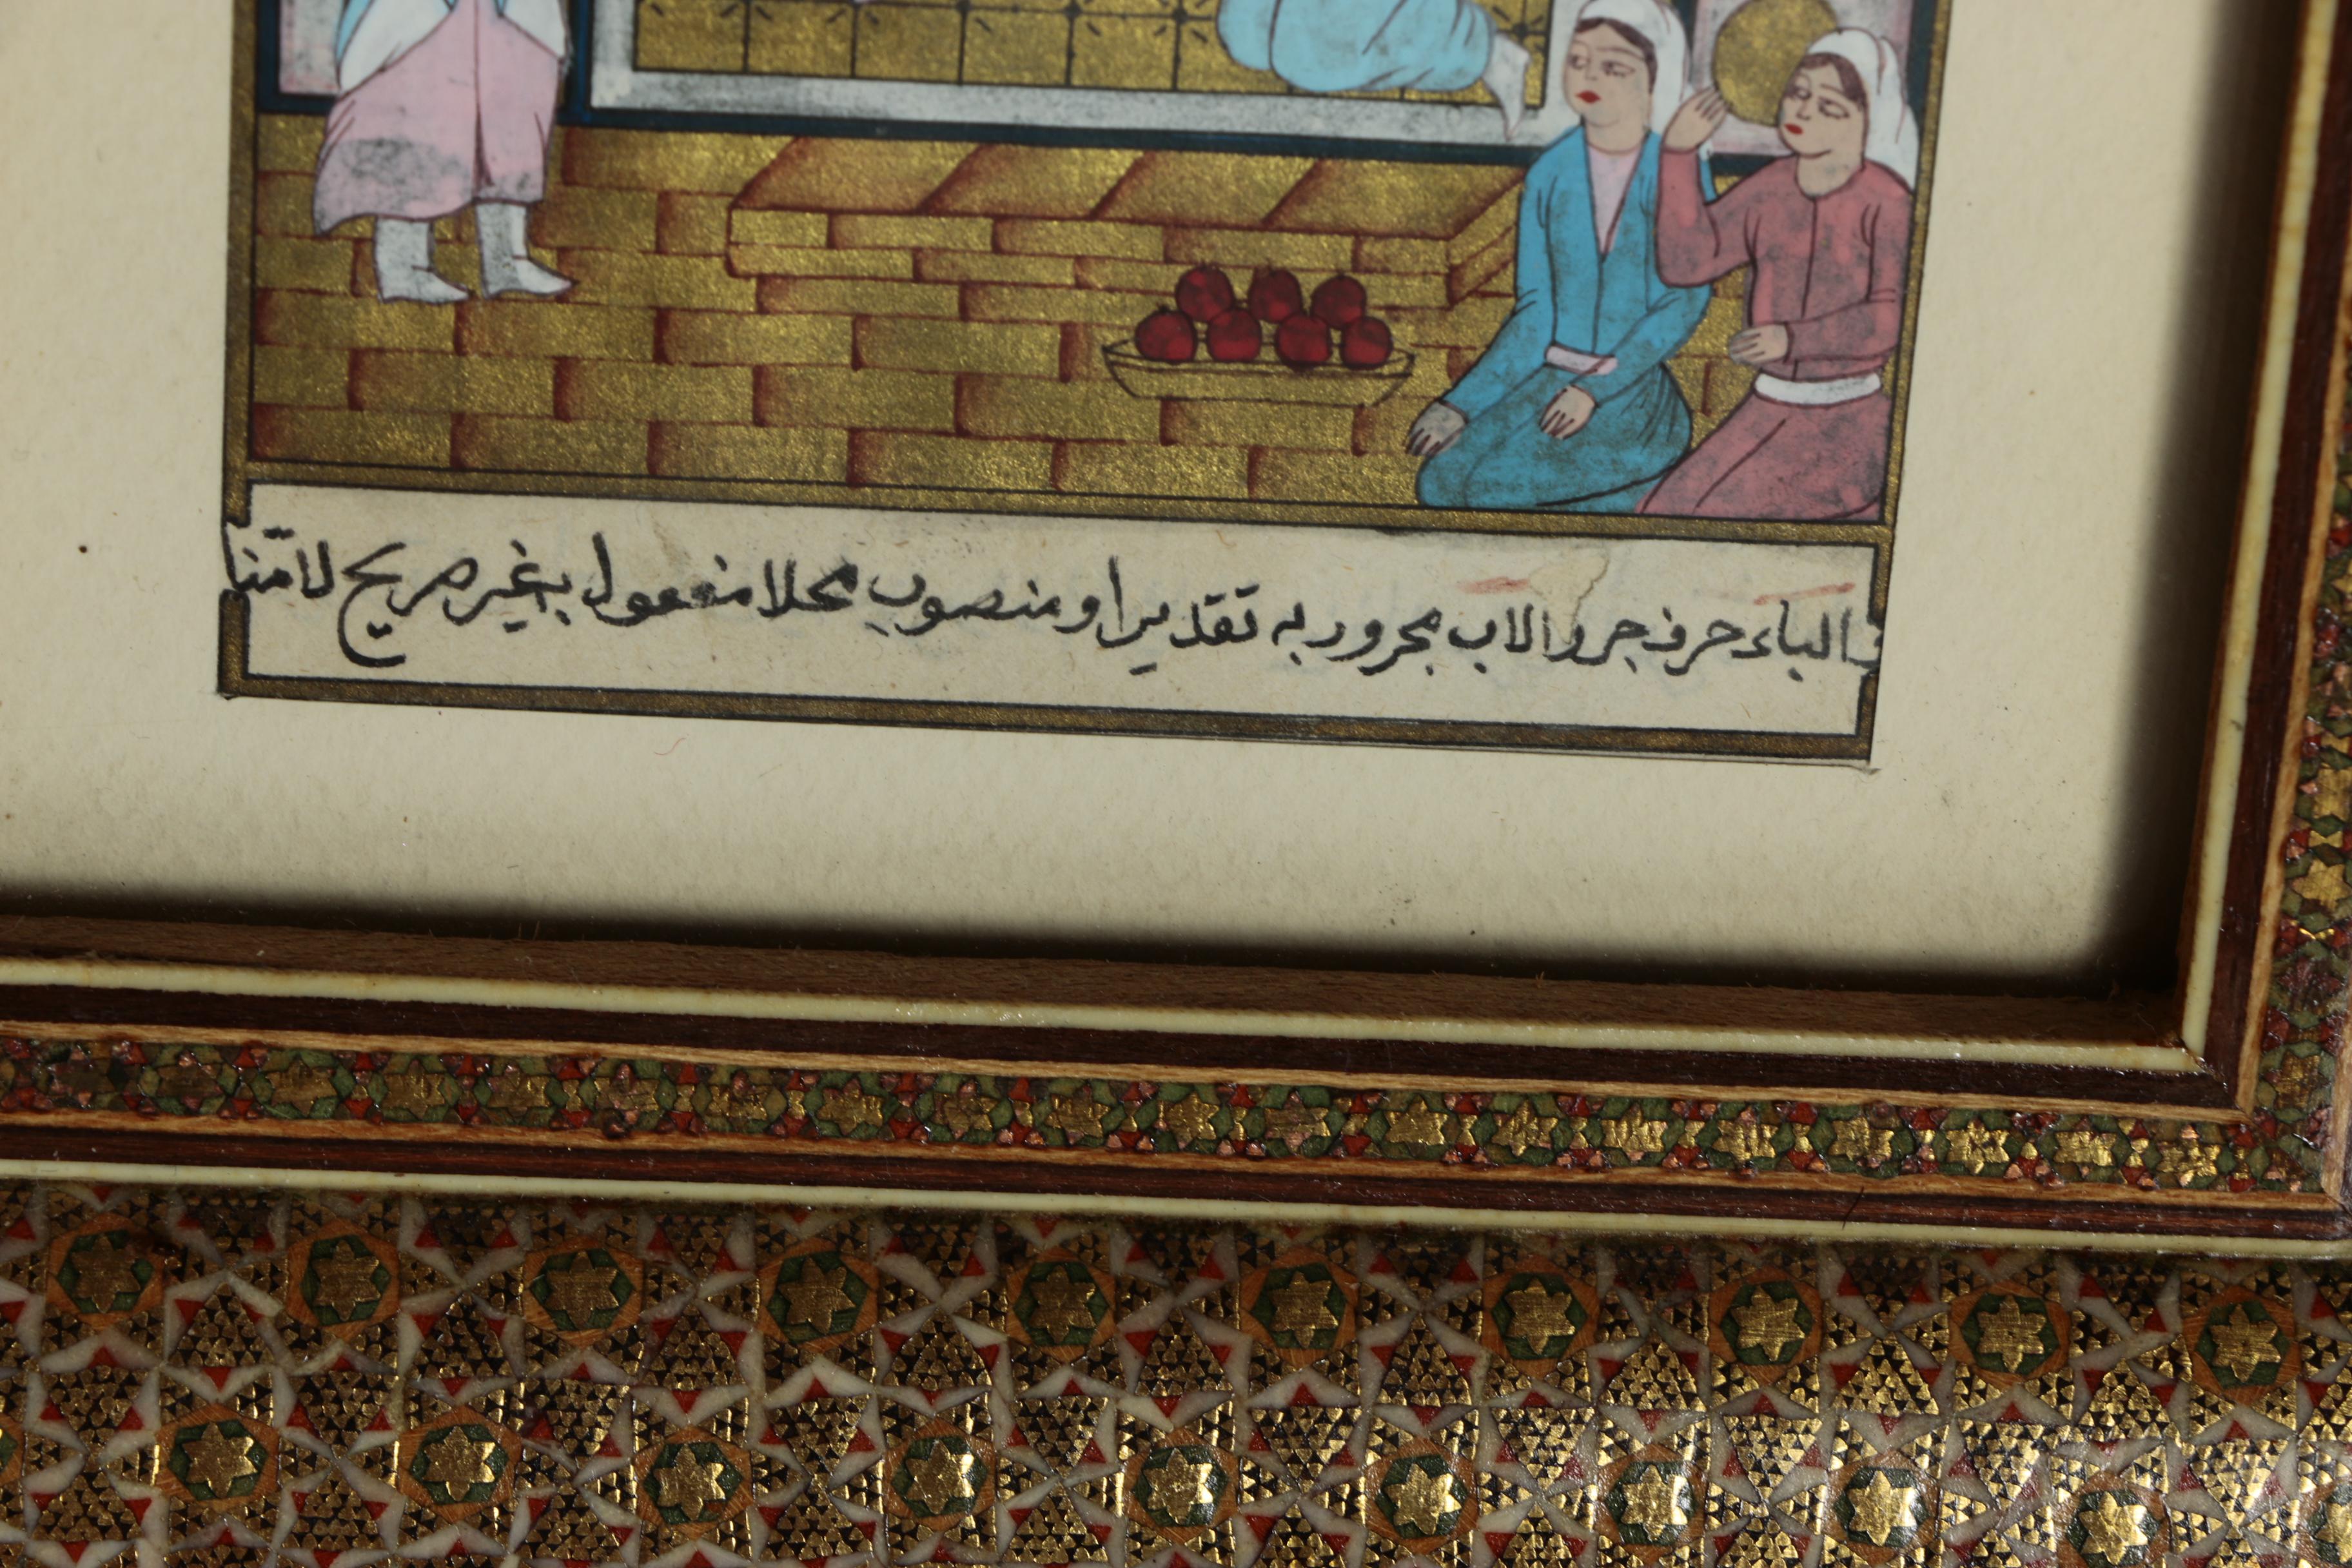 الباء حرف جر والاب مجرور به تقديرا ومنصوب محلا مفعول به غير صريح لامنا